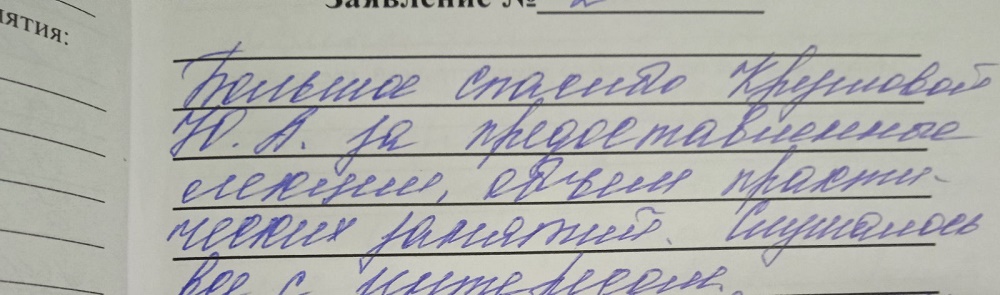 ятия:
Заявление № 2
Большое спасибо Круглова
Ю. А. за предоставленные
лекции, объем практи-
ческих занятий. Слушалось
все с интересом.